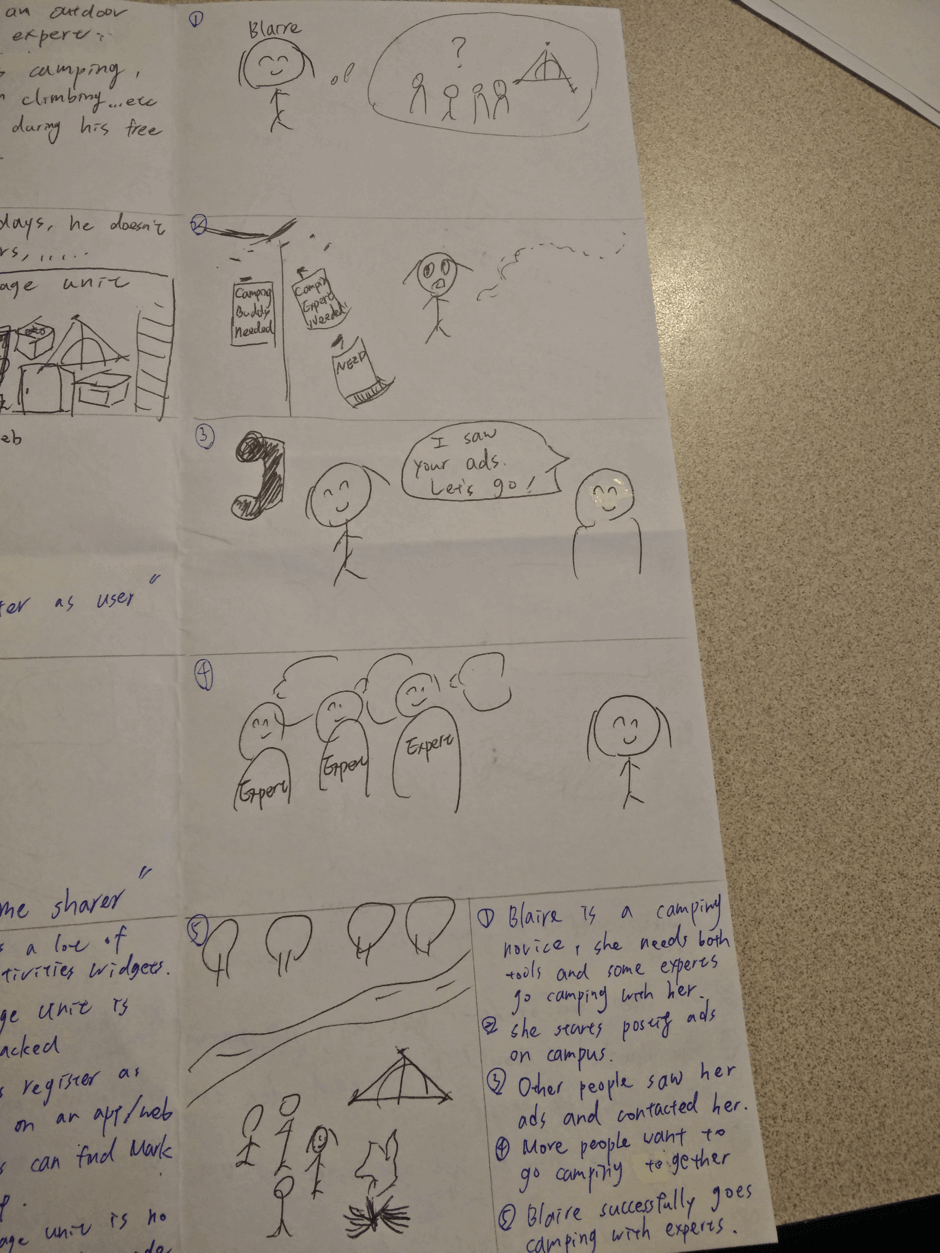 an outdoor
expert.
camping,
climbing...etc
during his free
days, he doesn't
rs, .....
age unit
eb
ter as user"
me sharer"
s a lot of
tivities widgets.
ge unit is
acked
s register as
on an app/web
s can find Mark
p.
age unit is no
①
Blaire
?
②
Camping
Buddy
Needed
Camping
Expert
Needed!
NEED
③
I saw
your ads.
Let's go!
④
Expert
Expert
Expert
⑤
① Blaire is a camping
novice, she needs both
tools and some experts
go camping with her.
② She starts postig ads
on campus.
③ Other people saw her
ads and contacted her.
④ More people want to
go camping together
⑤ Blaire successfully goes
camping with experts.